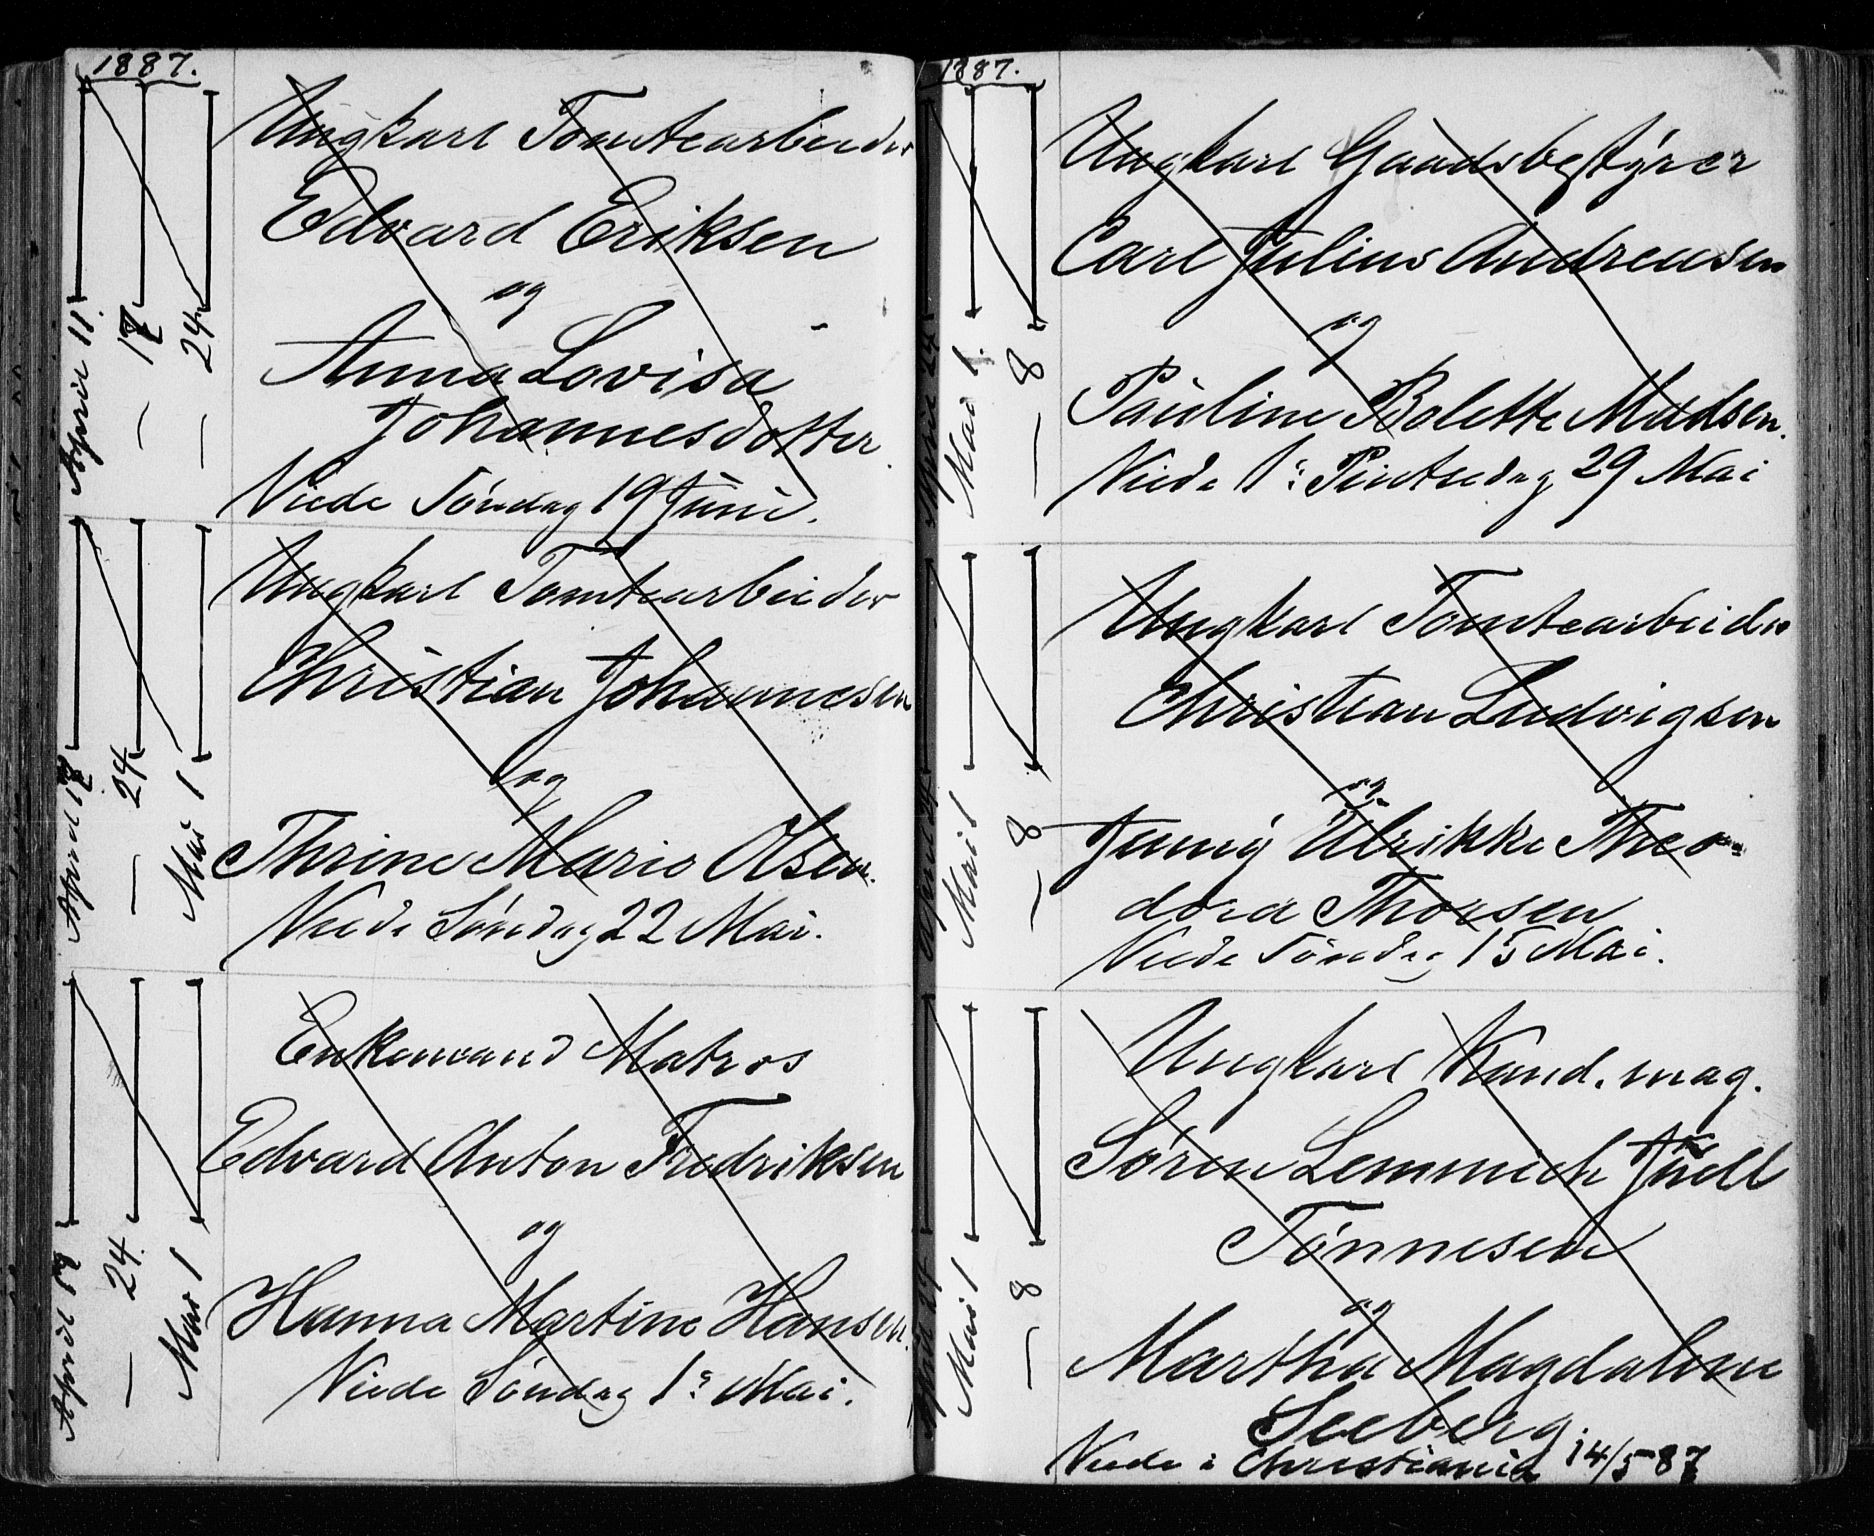 1887.
April 11.
— 17
— 24
Ungkarl Tomtearbeider
Edvard Eriksen
og
Anna Lovisa
Johannesdotter.
Viede Söndag 19 Juni.
April 17
— 24
Mai 1
Ungkarl Tomtearbeider
Christian Johannesen
og
Thrine Marie Olsen.
Viede Søndag 22 Mai.
April 17
— 24.
Mai 1
Enkemand Matros
Edvard Anton Fredriksen
og
Hanna Martine Hansen.
Viede Søndag 1s Mai.
1887.
April 24
Mai 1.
— 8
Ungkarl Gaardsbestyrer
Carl Julius Andreasen
og
Pauline Bolette Madsen.
Viede 1s Pintsedag 29 Mai
April 24
Mai 1
— 8
Ungkarl Tomtearbeider
Christian Ludvigsen
og
Jenny Ulrikke Theo-
dora Thorsen
Viede Söndag 15 Mai.
April 24
Mai 1
— 8
Ungkarl Kand. mag.
Søren Lemmich Juell
Tønnesen
og
Martha Magdalene
Seeberg.
Viede i Christiania 14/5 87